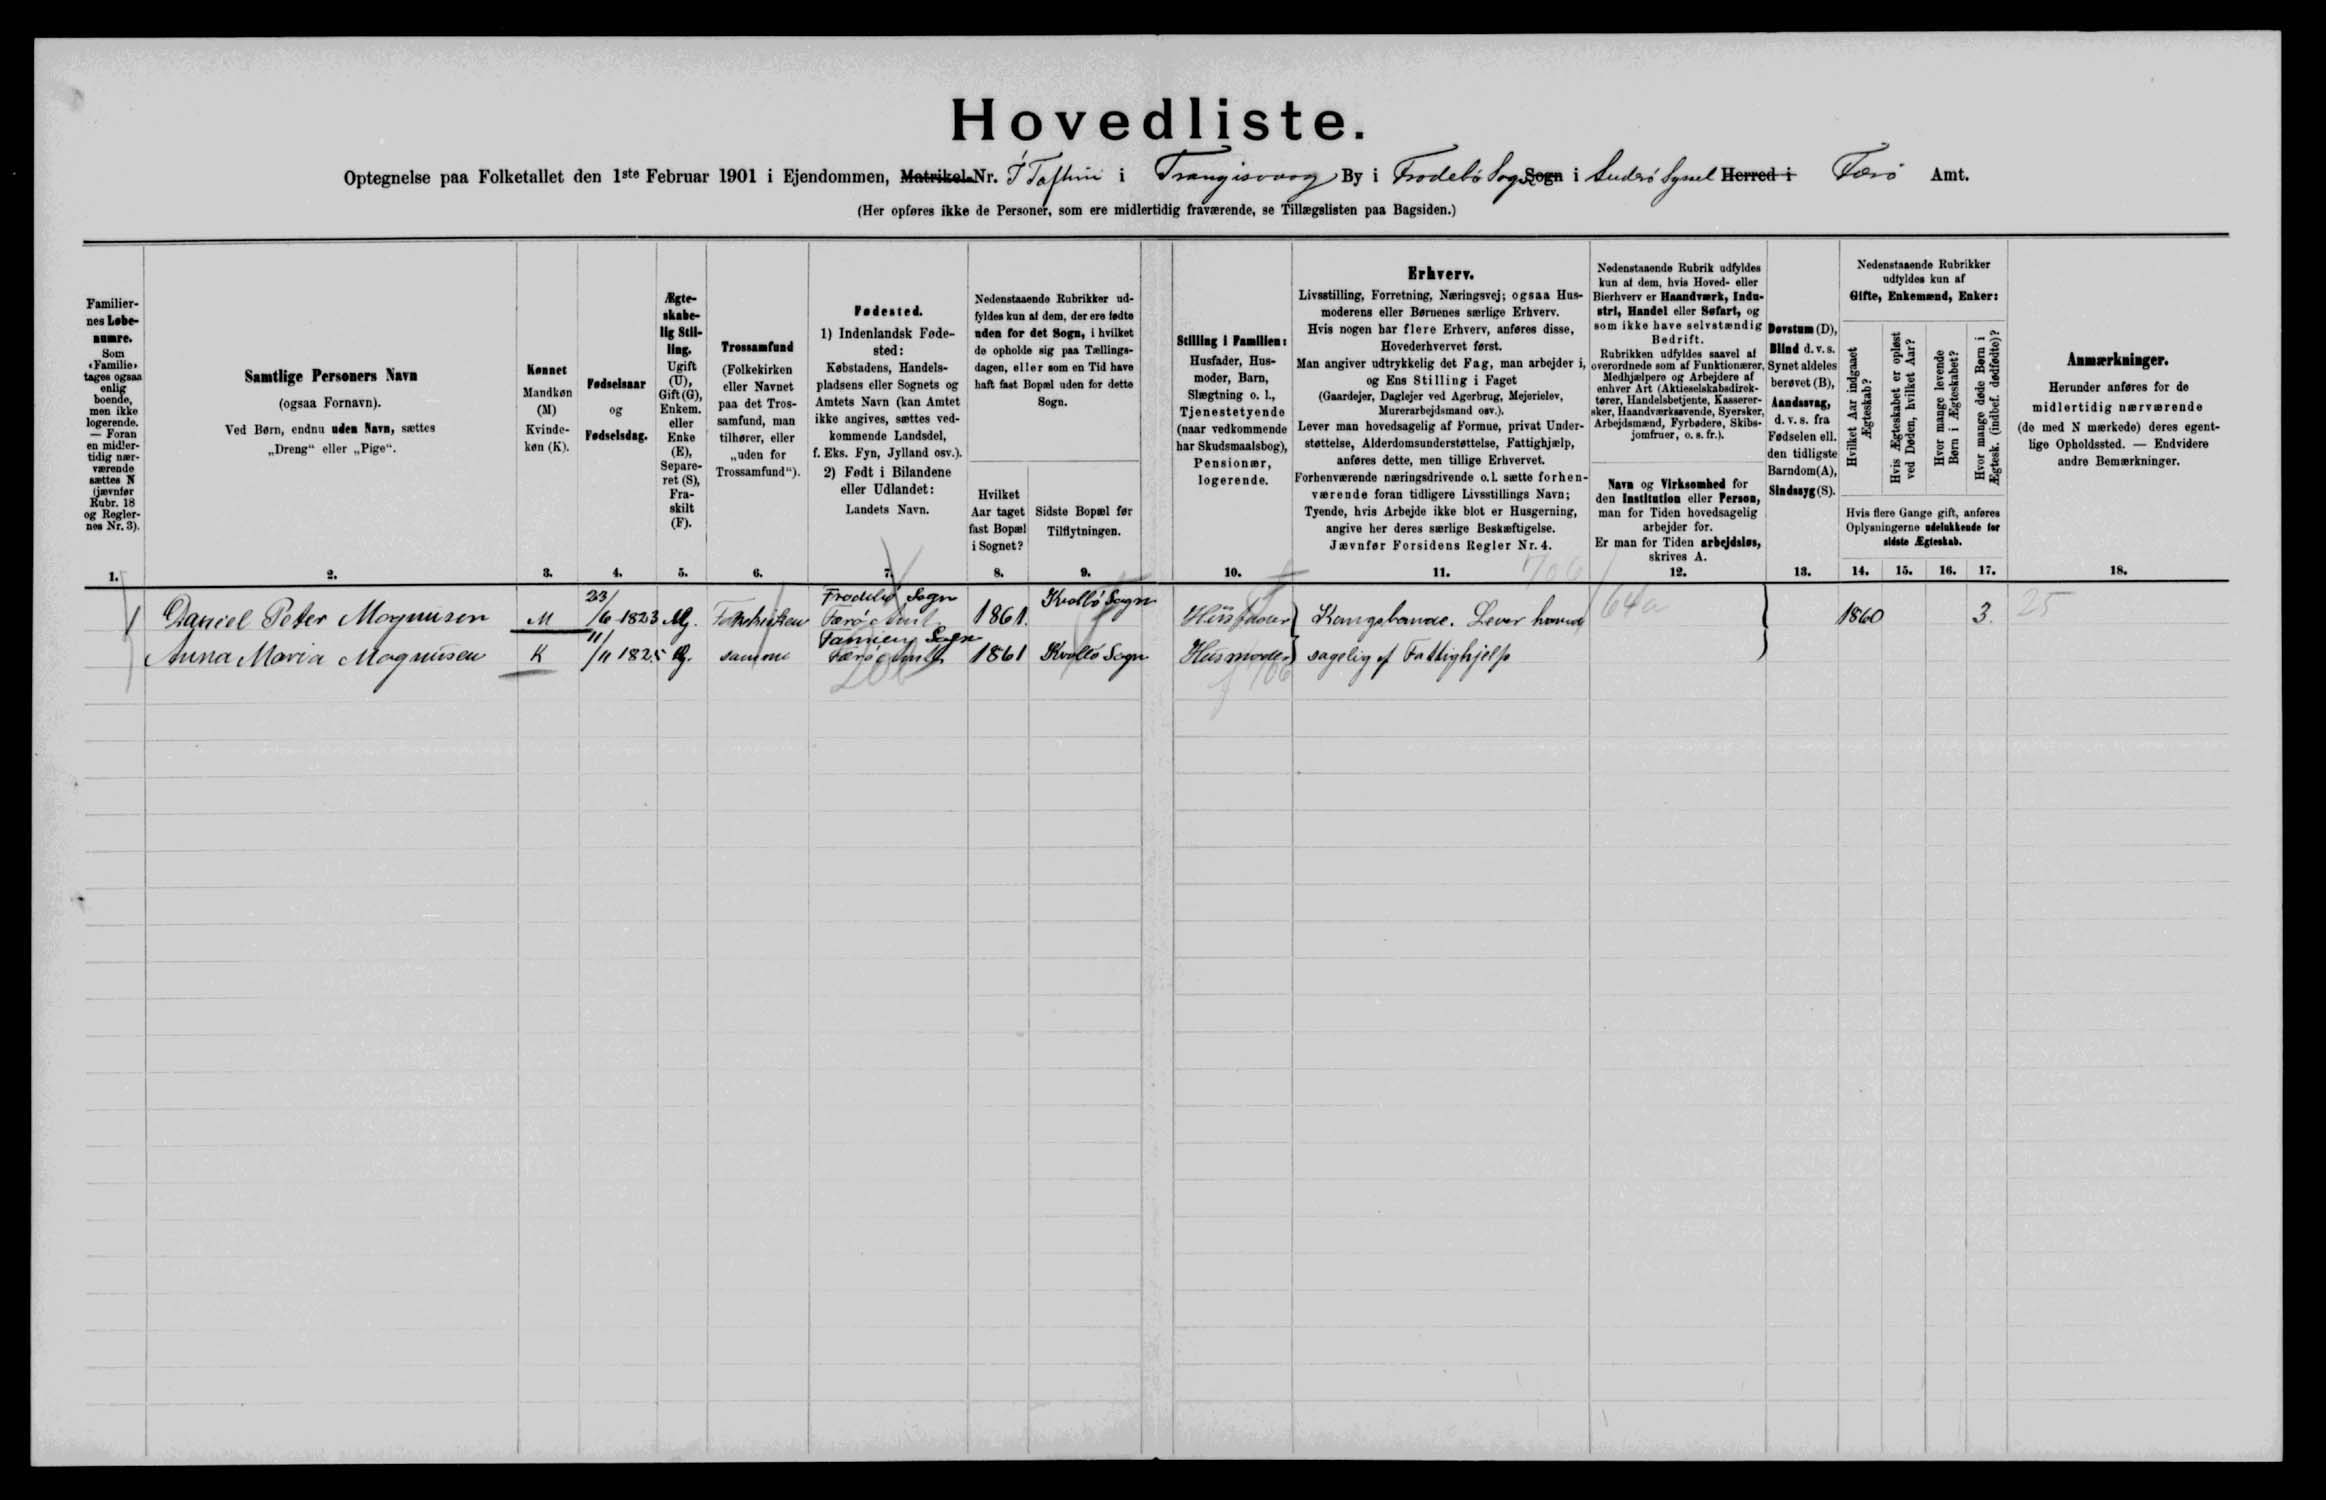 Hovedliste.
Optegnelse paa Folketallet den 1ste Februar 1901 i Ejendommen, Matrikel-Nr. Í Toftun i Trangisvaag By i Frodebö Sogn Sogn i Suderö Syssel Herred i Færö Amt.
(Her opføres ikke de Personer, som ere midlertidig fraværende, se Tillægslisten paa Bagsiden.)
Familier-
nes Løbe-
numre.
Som
«Familie»
tages ogsaa
enlig
boende,
men ikke
logerende.
— Foran
en midler-
tidig nær-
værende
sættes N
(jævnfør
Rubr. 18
og Regler-
nes Nr. 3).
1.
Samtlige Personers Navn
(ogsaa Fornavn).
Ved Børn, endnu uden Navn, sættes
„Dreng“ eller „Pige“.
2.
Kønnet
Mandkøn
(M)
Kvinde-
køn (K).
3.
Fødselsaar
og
Fødselsdag.
4.
Ægte-
skabe-
lig Stil-
ling.
Ugift
(U),
Gift (G),
Enkem.
eller
Enke
(E),
Separe-
ret (S),
Fra-
skilt
(F).
5.
Trossamfund
(Folkekirken
eller Navnet
paa det Tros-
samfund, man
tilhører, eller
„uden for
Trossamfund“).
6.
Fødested.
1) Indenlandsk Føde-
sted:
Købstadens, Handels-
pladsens eller Sognets og
Amtets Navn (kan Amtet
ikke angives, sættes ved-
kommende Landsdel,
f. Eks. Fyn, Jylland osv.).
2) Født i Bilandene
eller Udlandet:
Landets Navn.
7.
Nedenstaaende Rubrikker ud-
fyldes kun af dem, der ere fødte
uden for det Sogn, i hvilket
de opholde sig paa Tællings-
dagen, eller som en Tid have
haft fast Bopæl uden for dette
Sogn.
Hvilket
Aar taget
fast Bopæl
i Sognet?
8.
Sidste Bopæl før
Tilflytningen.
9.
Stilling i Familien:
Husfader, Hus-
moder, Barn,
Slægtning o. l.,
Tjenestetyende
(naar vedkommende
har Skudsmaalsbog),
Pensionær,
logerende.
10.
Erhverv.
Livsstilling, Forretning, Næringsvej; ogsaa Hus-
moderens eller Børnenes særlige Erhverv.
Hvis nogen har flere Erhverv, anføres disse,
Hovederhvervet først.
Man angiver udtrykkelig det Fag, man arbejder i,
og Ens Stilling i Faget
(Gaardejer, Daglejer ved Agerbrug, Mejerielev,
Murerarbejdsmand osv.).
Lever man hovedsagelig af Formue, privat Under-
støttelse, Alderdomsunderstøttelse, Fattighjælp,
anføres dette, men tillige Erhvervet.
Forhenværende næringsdrivende o. l. sætte forhen-
værende foran tidligere Livsstillings Navn;
Tyende, hvis Arbejde ikke blot er Husgerning,
angive her deres særlige Beskæftigelse.
Jævnfør Forsidens Regler Nr. 4.
11.
Nedenstaaende Rubrik udfyldes
kun af dem, hvis Hoved- eller
Bierhverv er Haandværk, Indu-
stri, Handel eller Søfart, og
som ikke have selvstændig
Bedrift.
Rubrikken udfyldes saavel af
overordnede som af Funktionærer,
Medhjælpere og Arbejdere af
enhver Art (Aktieselskabsdirek-
tører, Handelsbetjente, Kasserer-
sker, Haandværkssvende, Syersker,
Arbejdsmænd, Fyrbødere, Skibs-
jomfruer, o. s. fr.).
Navn og Virksomhed for
den Institution eller Person,
man for Tiden hovedsagelig
arbejder for.
Er man for Tiden arbejdsløs,
skrives A.
12.
Døvstum (D),
Blind d. v. s.
Synet aldeles
berøvet (B),
Aandssvag,
d. v. s. fra
Fødselen ell.
den tidligste
Barndom (A),
Sindssyg (S).
13.
Nedenstaaende Rubrikker
udfyldes kun af
Gifte, Enkemænd, Enker:
Hvilket Aar indgaaet
Ægteskab?
Hvis Ægteskabet er opløst
ved Døden, hvilket Aar?
Hvor mange levende
Børn i Ægteskabet?
Hvor mange døde Børn i
Ægtesk. (indbef. dødfødte)?
Hvis flere Gange gift, anføres
Oplysningerne udelukkende for
sidste Ægteskab.
14. 15. 16. 17.
Anmærkninger.
Herunder anføres for de
midlertidig nærværende
(de med N mærkede) deres egent-
lige Opholdssted. — Endvidere
andre Bemærkninger.
18.
1 Daniel Peter Magnusen M 23/6 1823 G. Folkekirken Frodebö Sogn Færö Amt 1861. Kvalbö Sogn Husfader Kongsbonde. Lever hoved 64a 1860 3. 25
Anna Maria Magnusen K 11/11 1825 G. samme Sogn Færö Amt 1861 Kvalbö Sogn Husmoder sagelig af Fattighjelp